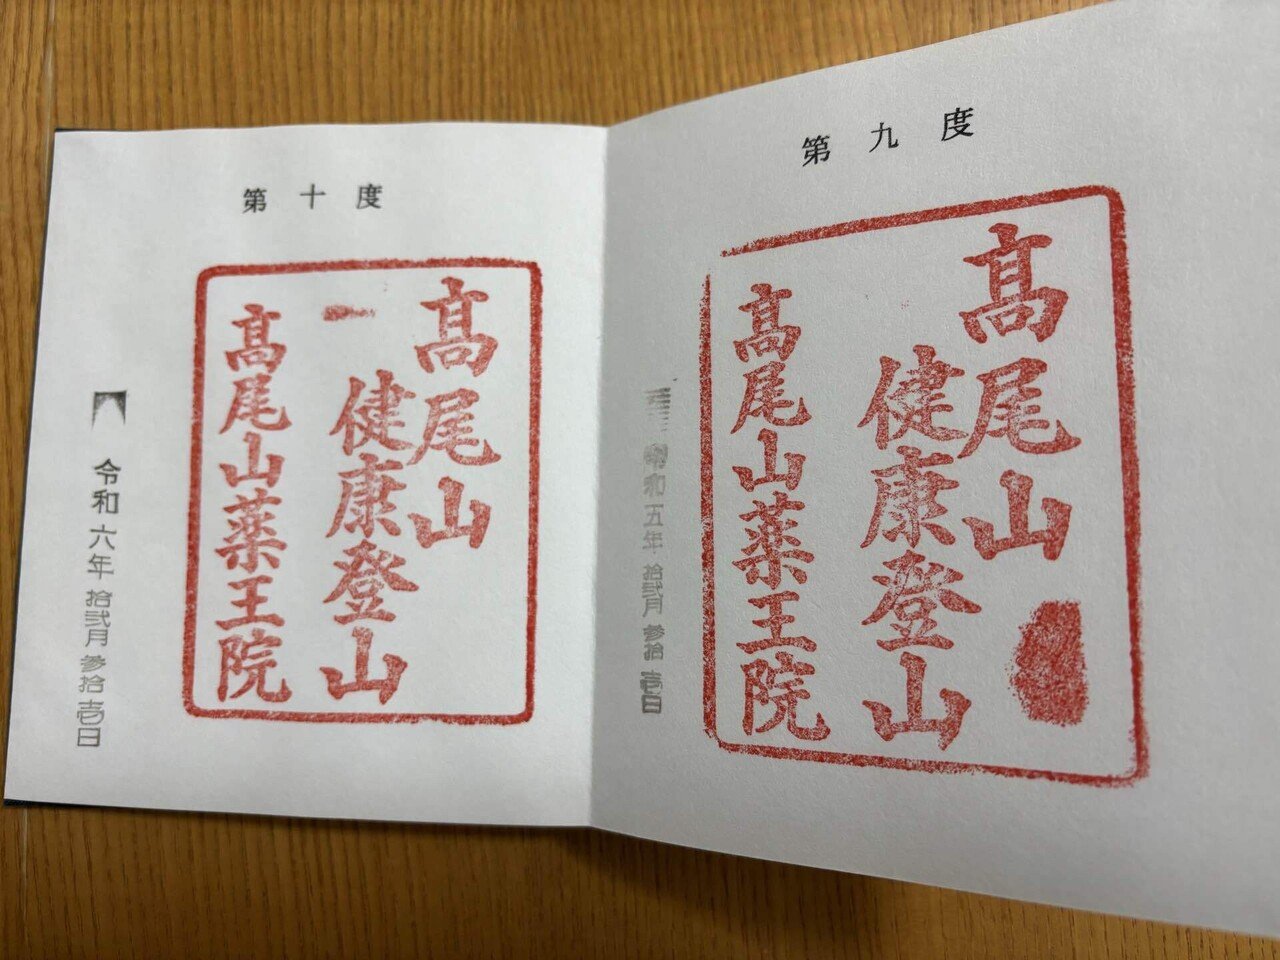 第九度
髙尾山
健康登山
髙尾山薬王院
令和五年拾弐月参拾壱日
第十度
髙尾山
健康登山
髙尾山薬王院
令和六年拾弐月参拾壱日